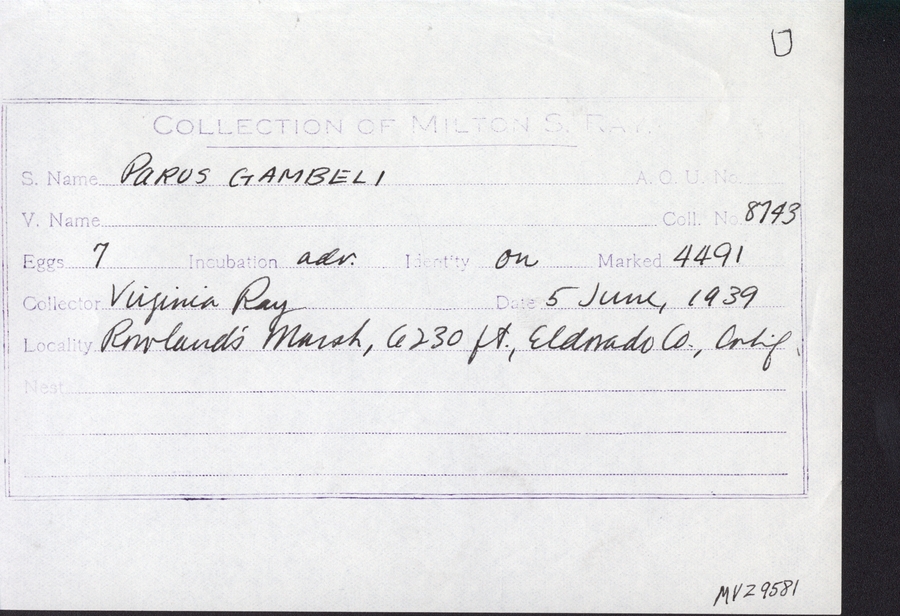 COLLECTION OF MILTON S. RAY
S. Name PARUS GAMBELI A. O. U. No.
V. Name Coll. No. 8743
Eggs 7 Incubation adv. Identity on Marked 4491
Collector Virginia Ray Date 5 June, 1939
Locality Rowland's Marsh, 6230 ft., Eldorado Co., Calif.
Nest
MVZ9581